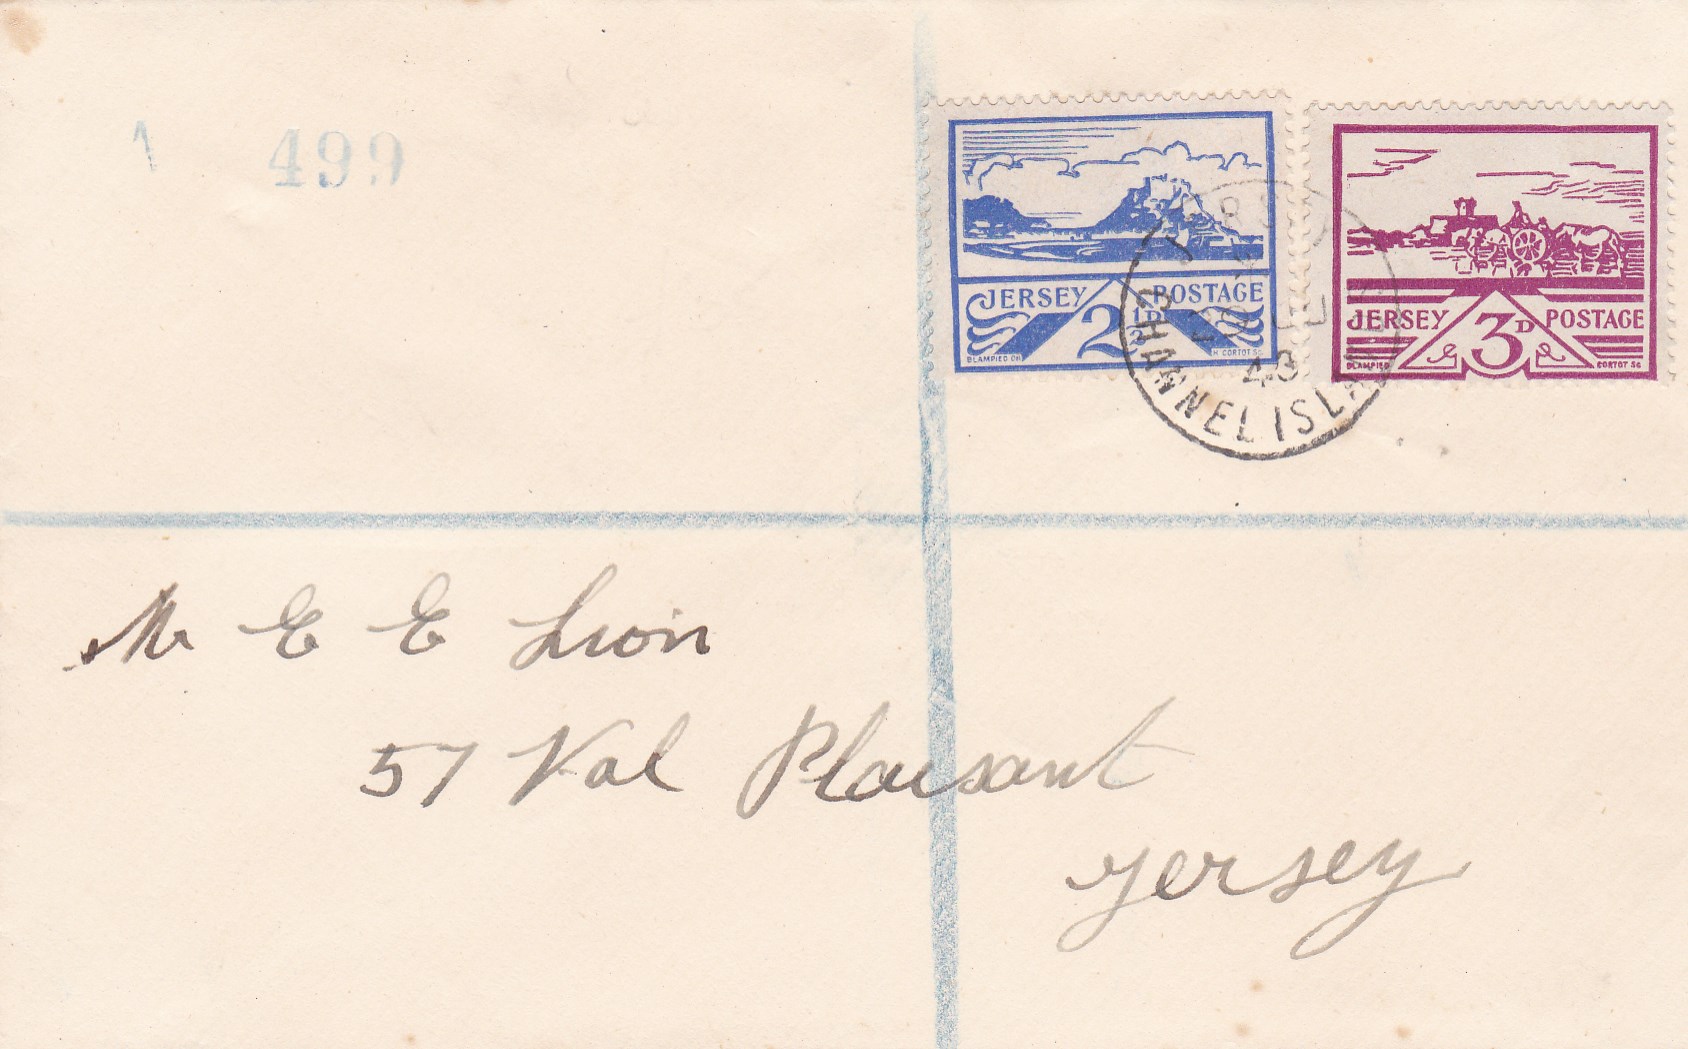 1 499
JERSEY POSTAGE
2½D
BLAMPIED CH H. CORTOT SC
JERSEY POSTAGE
3D
BLAMPIED CORTOT SC
JERSEY
29 JU
43
CHANNEL ISLANDS
Mr E E Lion
57 Val Plaisant
Jersey